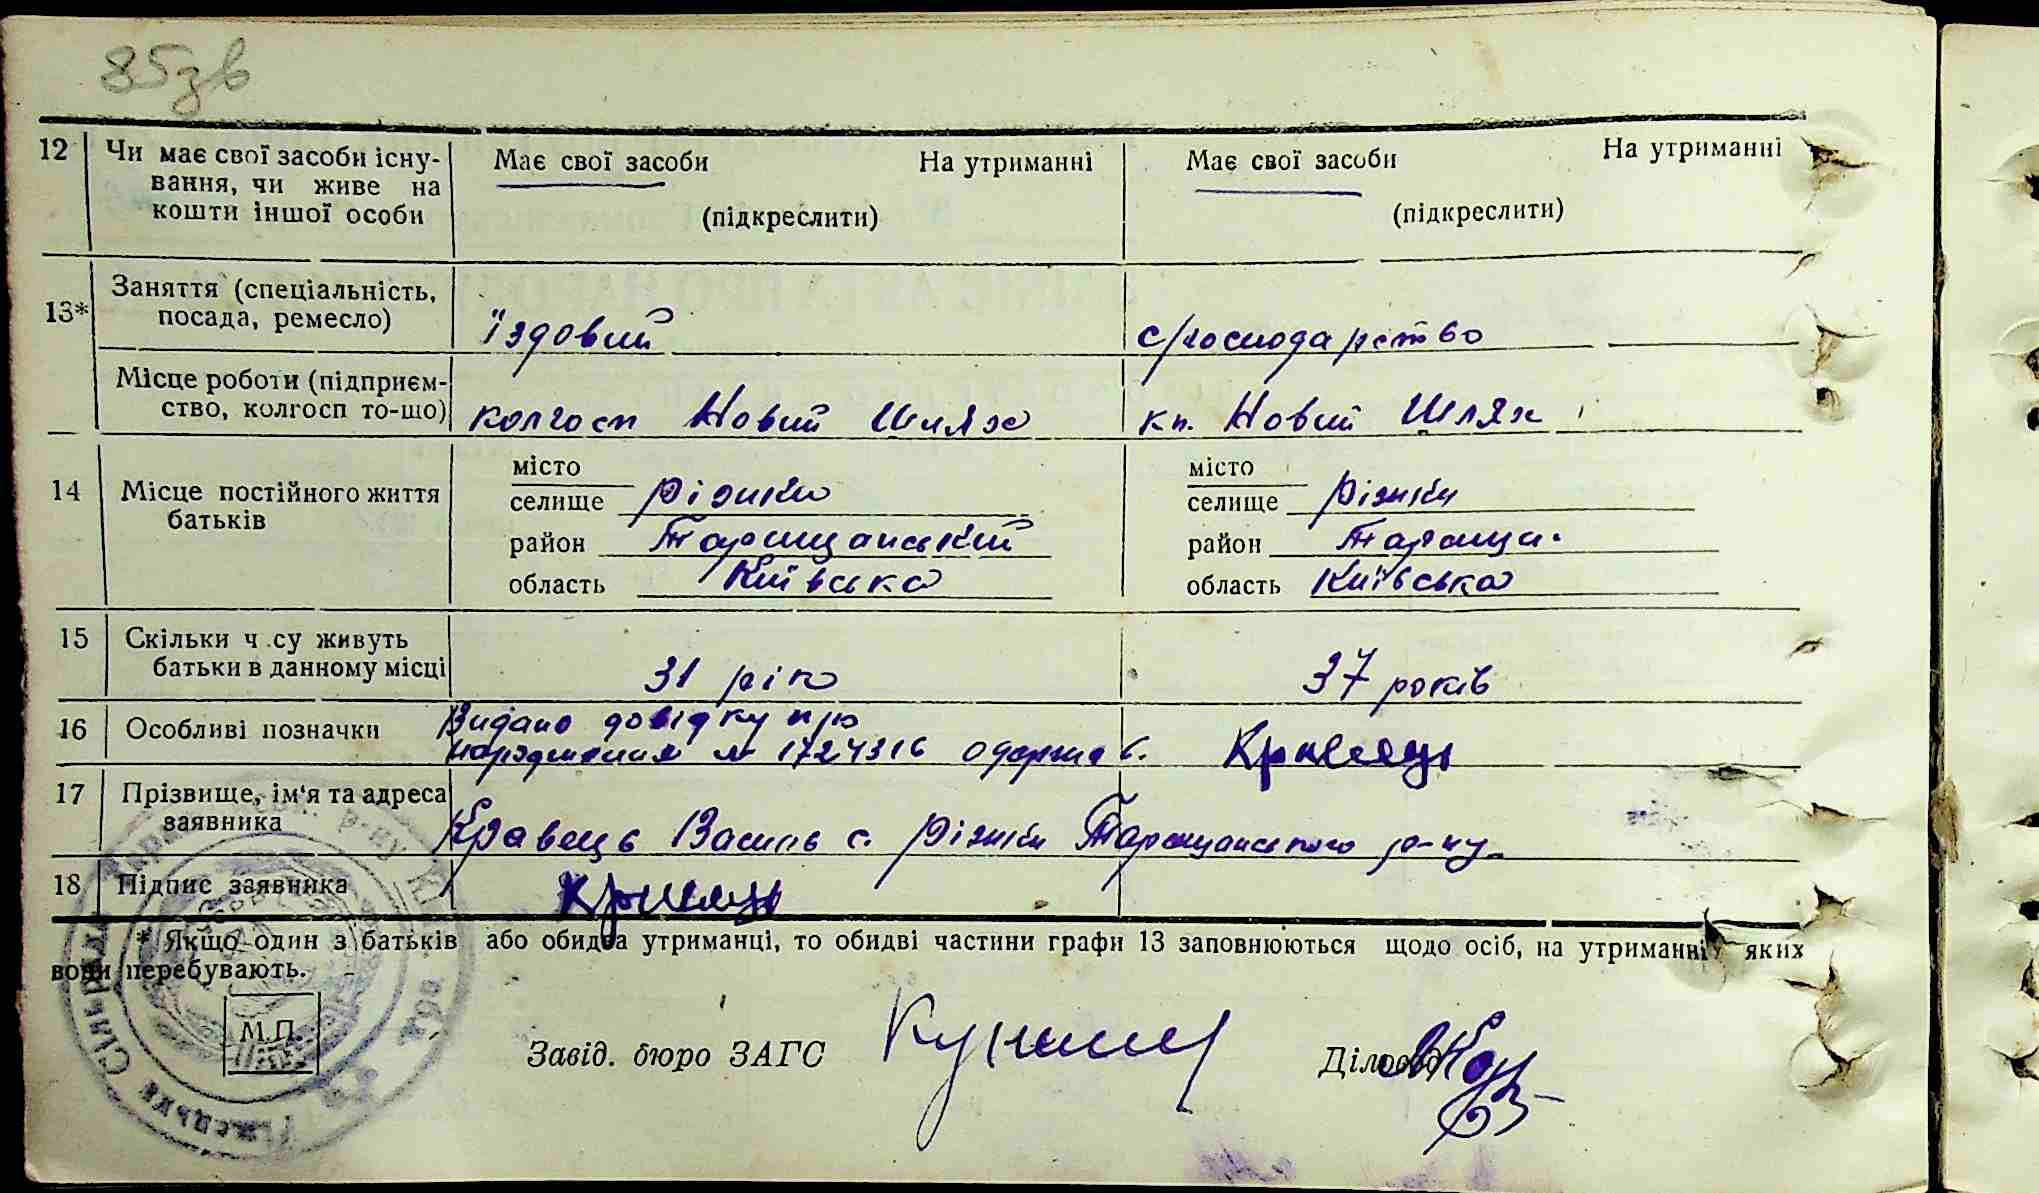 85зв
12 Чи має свої засоби існу- Має свої засоби На утриманні Має свої засоби На утриманні
вання, чи живе на
кошти іншої особи (підкреслити) (підкреслити)
13* Заняття (спеціальність,
посада, ремесло) їздовий с/господарство
Місце роботи (підприєм-
ство, колгосп то-що) колгосп Новий Шлях кп. Новий Шлях
місто місто
14 Місце постійного життя селище Ріжки селище Ріжки
батьків район Таращанський район Тараща.
область Київська область Київська
15 Скільки ч су живуть
батьки в данному місці 31 рік 37 років
16 Особливі позначки Видано довідку про
народження № 1724316 одержав. Кравець
17 Прізвище, ім'я та адреса
заявника Кравець Василь с. Ріжки Таращанського р-ну
18 Підпис заявника Кравець
* Якщо один з батьків або обидва утриманці, то обидві частини графи 13 заповнюються щодо осіб, на утриманні яких
вони перебувають.
М.П.
Завід. бюро ЗАГС Діловод